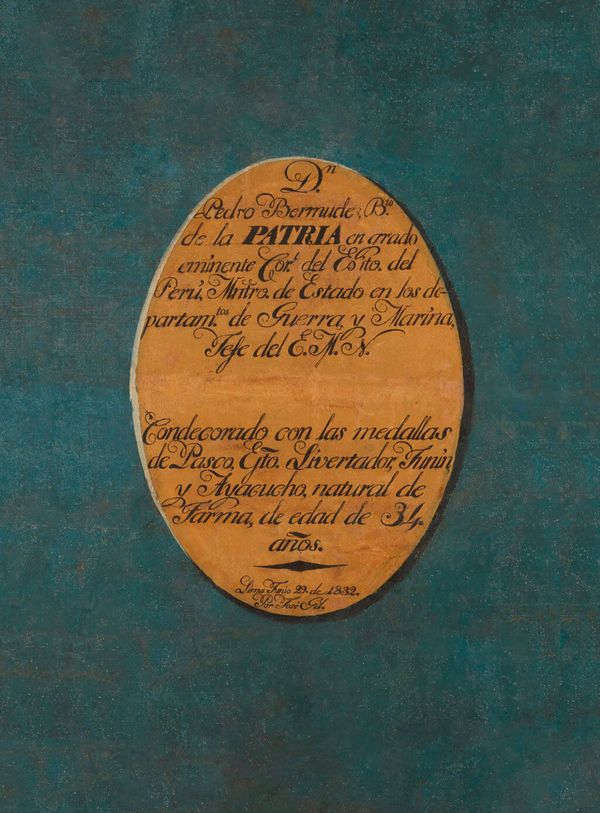 D.ⁿ
Pedro Bermudez, B.to
de la PATRIA en grado
eminente Cor.l del Eg̃ito. del
Perú, Mnr̃o. de Estado en los de-
partam.tos de Guerra, y Marina,
Jefe del E.M.N.
Condecorado con las medallas
de Pasco, Eg̃to. Livertador, Junin,
y Ayacucho, natural de
Tarma, de edad de 34.
años.
Lima Junio 29. de 1832.
Por José Gil.